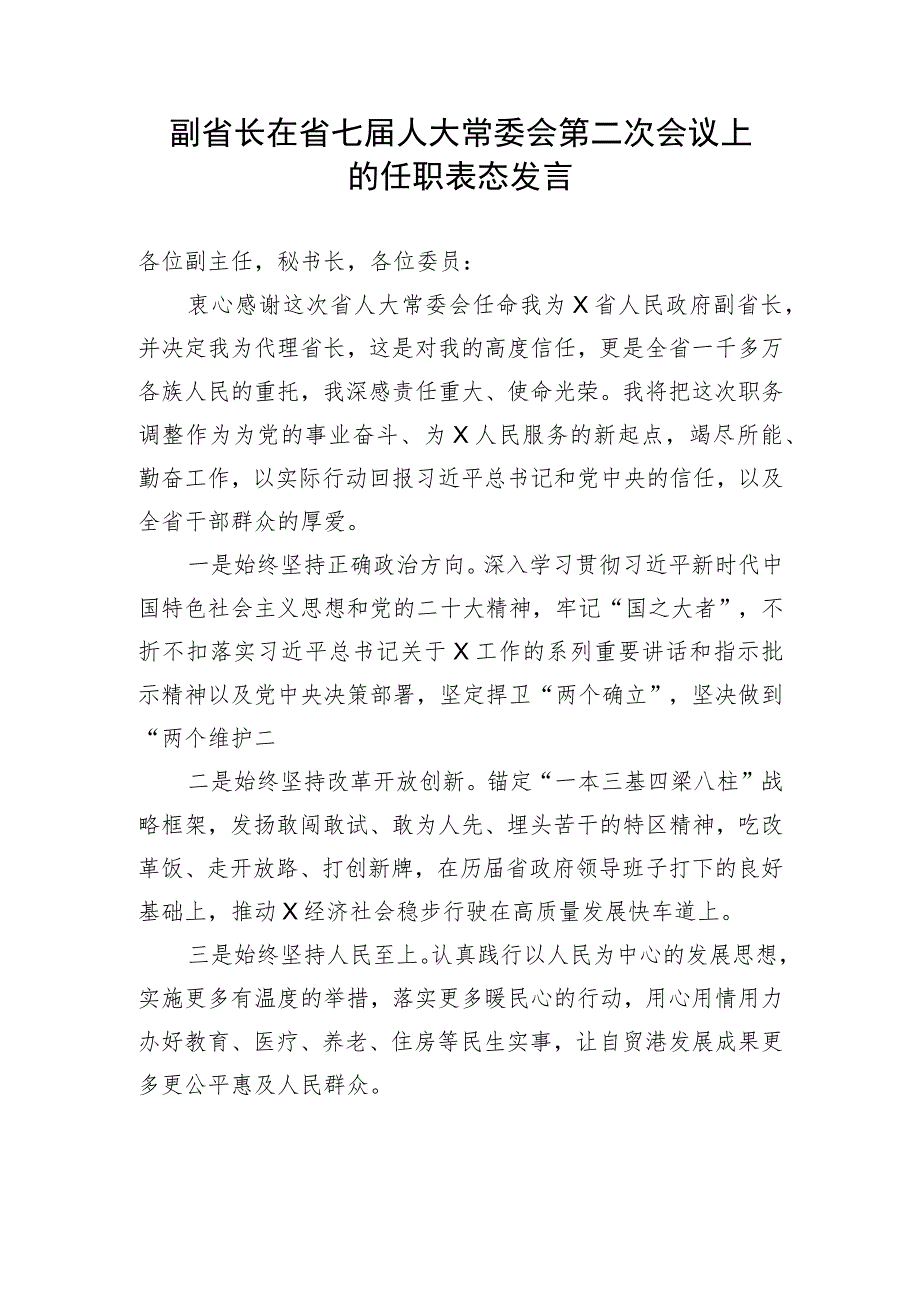 副省长在省七届人大常委会第二次会议上
的任职表态发言
各位副主任，秘书长，各位委员：
衷心感谢这次省人大常委会任命我为X省人民政府副省长，
并决定我为代理省长，这是对我的高度信任，更是全省一千多万
各族人民的重托，我深感责任重大、使命光荣。我将把这次职务
调整作为为党的事业奋斗、为X人民服务的新起点，竭尽所能、
勤奋工作，以实际行动回报习近平总书记和党中央的信任，以及
全省干部群众的厚爱。
一是始终坚持正确政治方向。深入学习贯彻习近平新时代中
国特色社会主义思想和党的二十大精神，牢记“国之大者”，不
折不扣落实习近平总书记关于X工作的系列重要讲话和指示批
示精神以及党中央决策部署，坚定捍卫“两个确立”，坚决做到
“两个维护二
二是始终坚持改革开放创新。锚定“一本三基四梁八柱”战
略框架，发扬敢闯敢试、敢为人先、埋头苦干的特区精神，吃改
革饭、走开放路、打创新牌，在历届省政府领导班子打下的良好
基础上，推动X经济社会稳步行驶在高质量发展快车道上。
三是始终坚持人民至上。认真践行以人民为中心的发展思想，
实施更多有温度的举措，落实更多暖民心的行动，用心用情用力
办好教育、医疗、养老、住房等民生实事，让自贸港发展成果更
多更公平惠及人民群众。